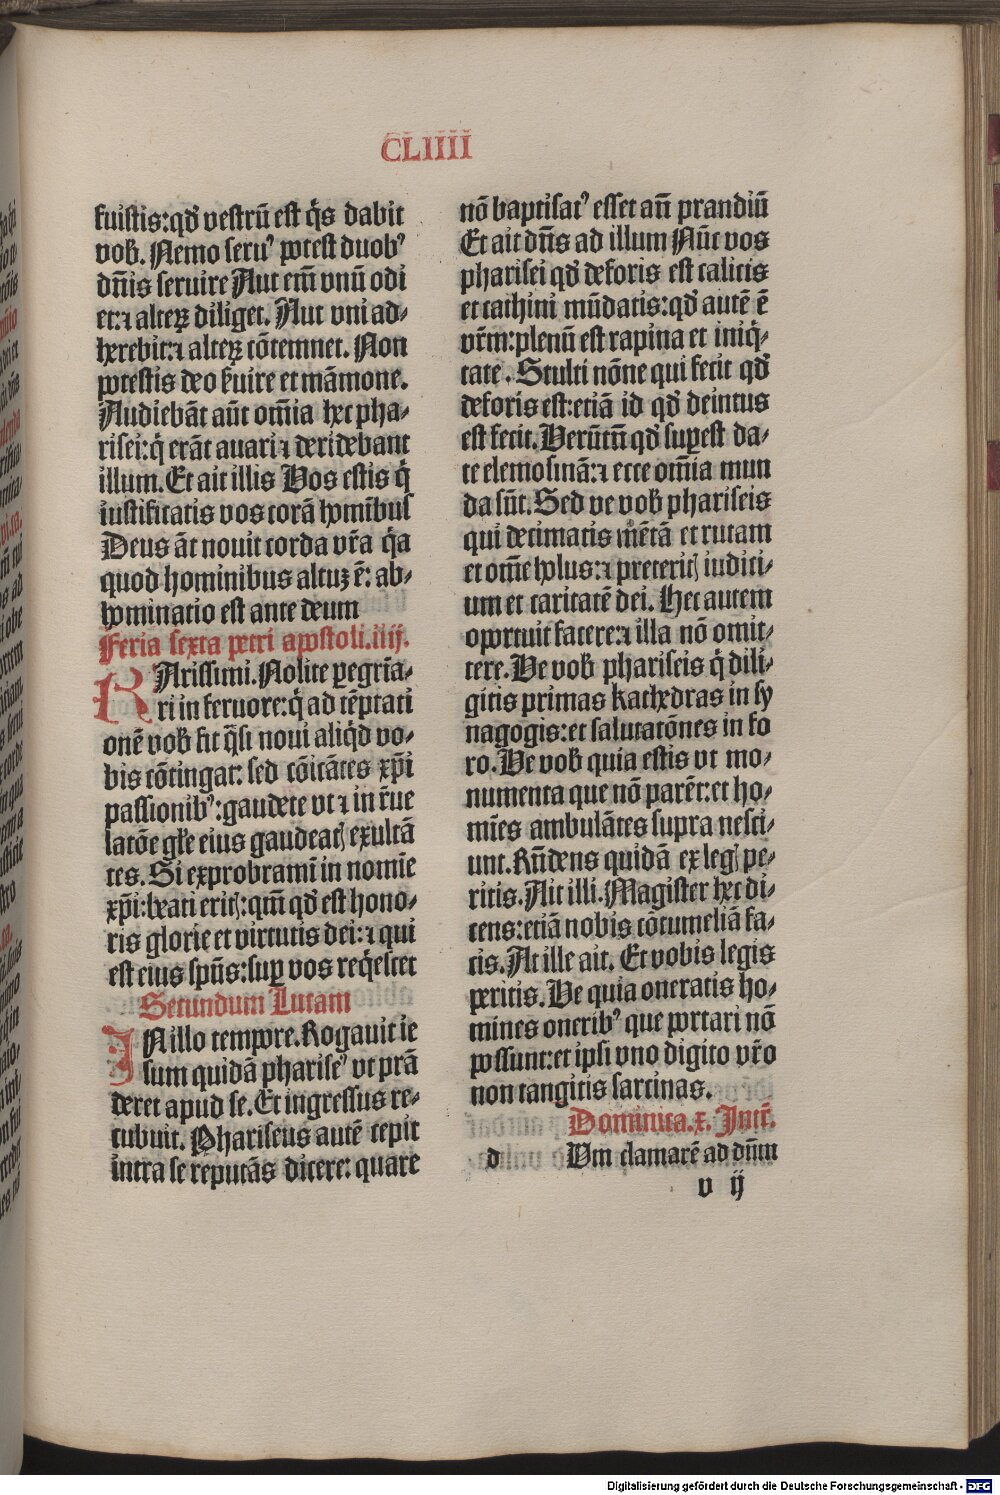 CLIIII
fuistis:qđ vestrū est q̇s dabit
vob̄. Nemo seruꝰ potest duobꝰ
dn̄is seruire Aut em̄ vnū odi
et:⁊ alteꝝ diliget. Aut vni ad⸗
herebit:⁊ alteꝝ cōtemnet. Non
potestis deo s̄uire et māmone.
Audiebāt aūt om̄ia hec pha⸗
risei:q̇ erāt auari ⁊ deridebant
illum. Et ait illis Vos estis q̇
iustificatis vos corā homībus
Deus āt nouit corda vr̄a q̇a
quod hominibus altuꝫ ē: ab⸗
hominatio est ante deum
Feria sexta petri apostoli.iiij.
KArissimi. Nolite ꝑegrīa⸗
ri in feruore:q̇ ad tēptati
onē vob̄ fit q̄si noui aliq̇d vo⸗
bis cōtingat: sed cōicātes xp̄i
passionibꝰ:gaudete vt ⁊ in r̄ue
latōe gl̄e eius gaudeatꝭ exultā
tes. Si exprobramī in nomīe
xp̄i:beati eritꝭ:qm̄ qđ est hono⸗
ris glorie et virtutis dei:⁊ qui
est eius spūs:suꝑ vos req̇escet
Secundum Lucam
INillo tempore. Rogauit ie
sum quidā phariseꝰ vt prā
deret apud se. Et ingressus re⸗
cubuit. Phariseus autē cepit
intra se reputās dicere: quare
nō baptisatꝰ esset an̄ prandiū
Et ait dn̄s ad illum Nūc vos
pharisei qđ deforis est calicis
et cathini mūdatis:qđ autē ē
vr̄m:plenū est rapina et iniq̇⸗
tate. Stulti nōne qui fecit qđ
deforis est:etiā id qđ deintus
est fecit. Verūtn̄ qđ suꝑest da⸗
te elemosinā:⁊ ecce om̄ia mun
da sūt. Sed ve vob̄ phariseis
qui decimatis mētā et rutam
et om̄e holus:⁊ preteritꝭ iudici⸗
um et caritatē dei. Hec autem
oportuit facere:⁊ illa nō omit⸗
tere. Ve vob̄ phariseis q̇ dili⸗
gitis primas kathedras in sy
nagogis:et salutatōnes in fo
ro. Ve vob̄ quia estis vt mo⸗
numenta que nō parēt:et ho⸗
mīes ambulātes supra nesci⸗
unt. Rn̄dens quidā ex legꝭ pe⸗
ritis. Ait illi. Magister hec di⸗
cens:etiā nobis cōtumeliā fa⸗
cis. At ille ait. Et vobis legis
peritis. Ve quia oneratis ho⸗
mines oneribꝰ que portari nō
possunt:et ipsi vno digito vr̄o
non tangitis sarcinas.
Dominica.x. Intr̄.
d Vm clamarē ad dn̄m
v ij
Digitalisierung gefördert durch die Deutsche Forschungsgemeinschaft - DFG